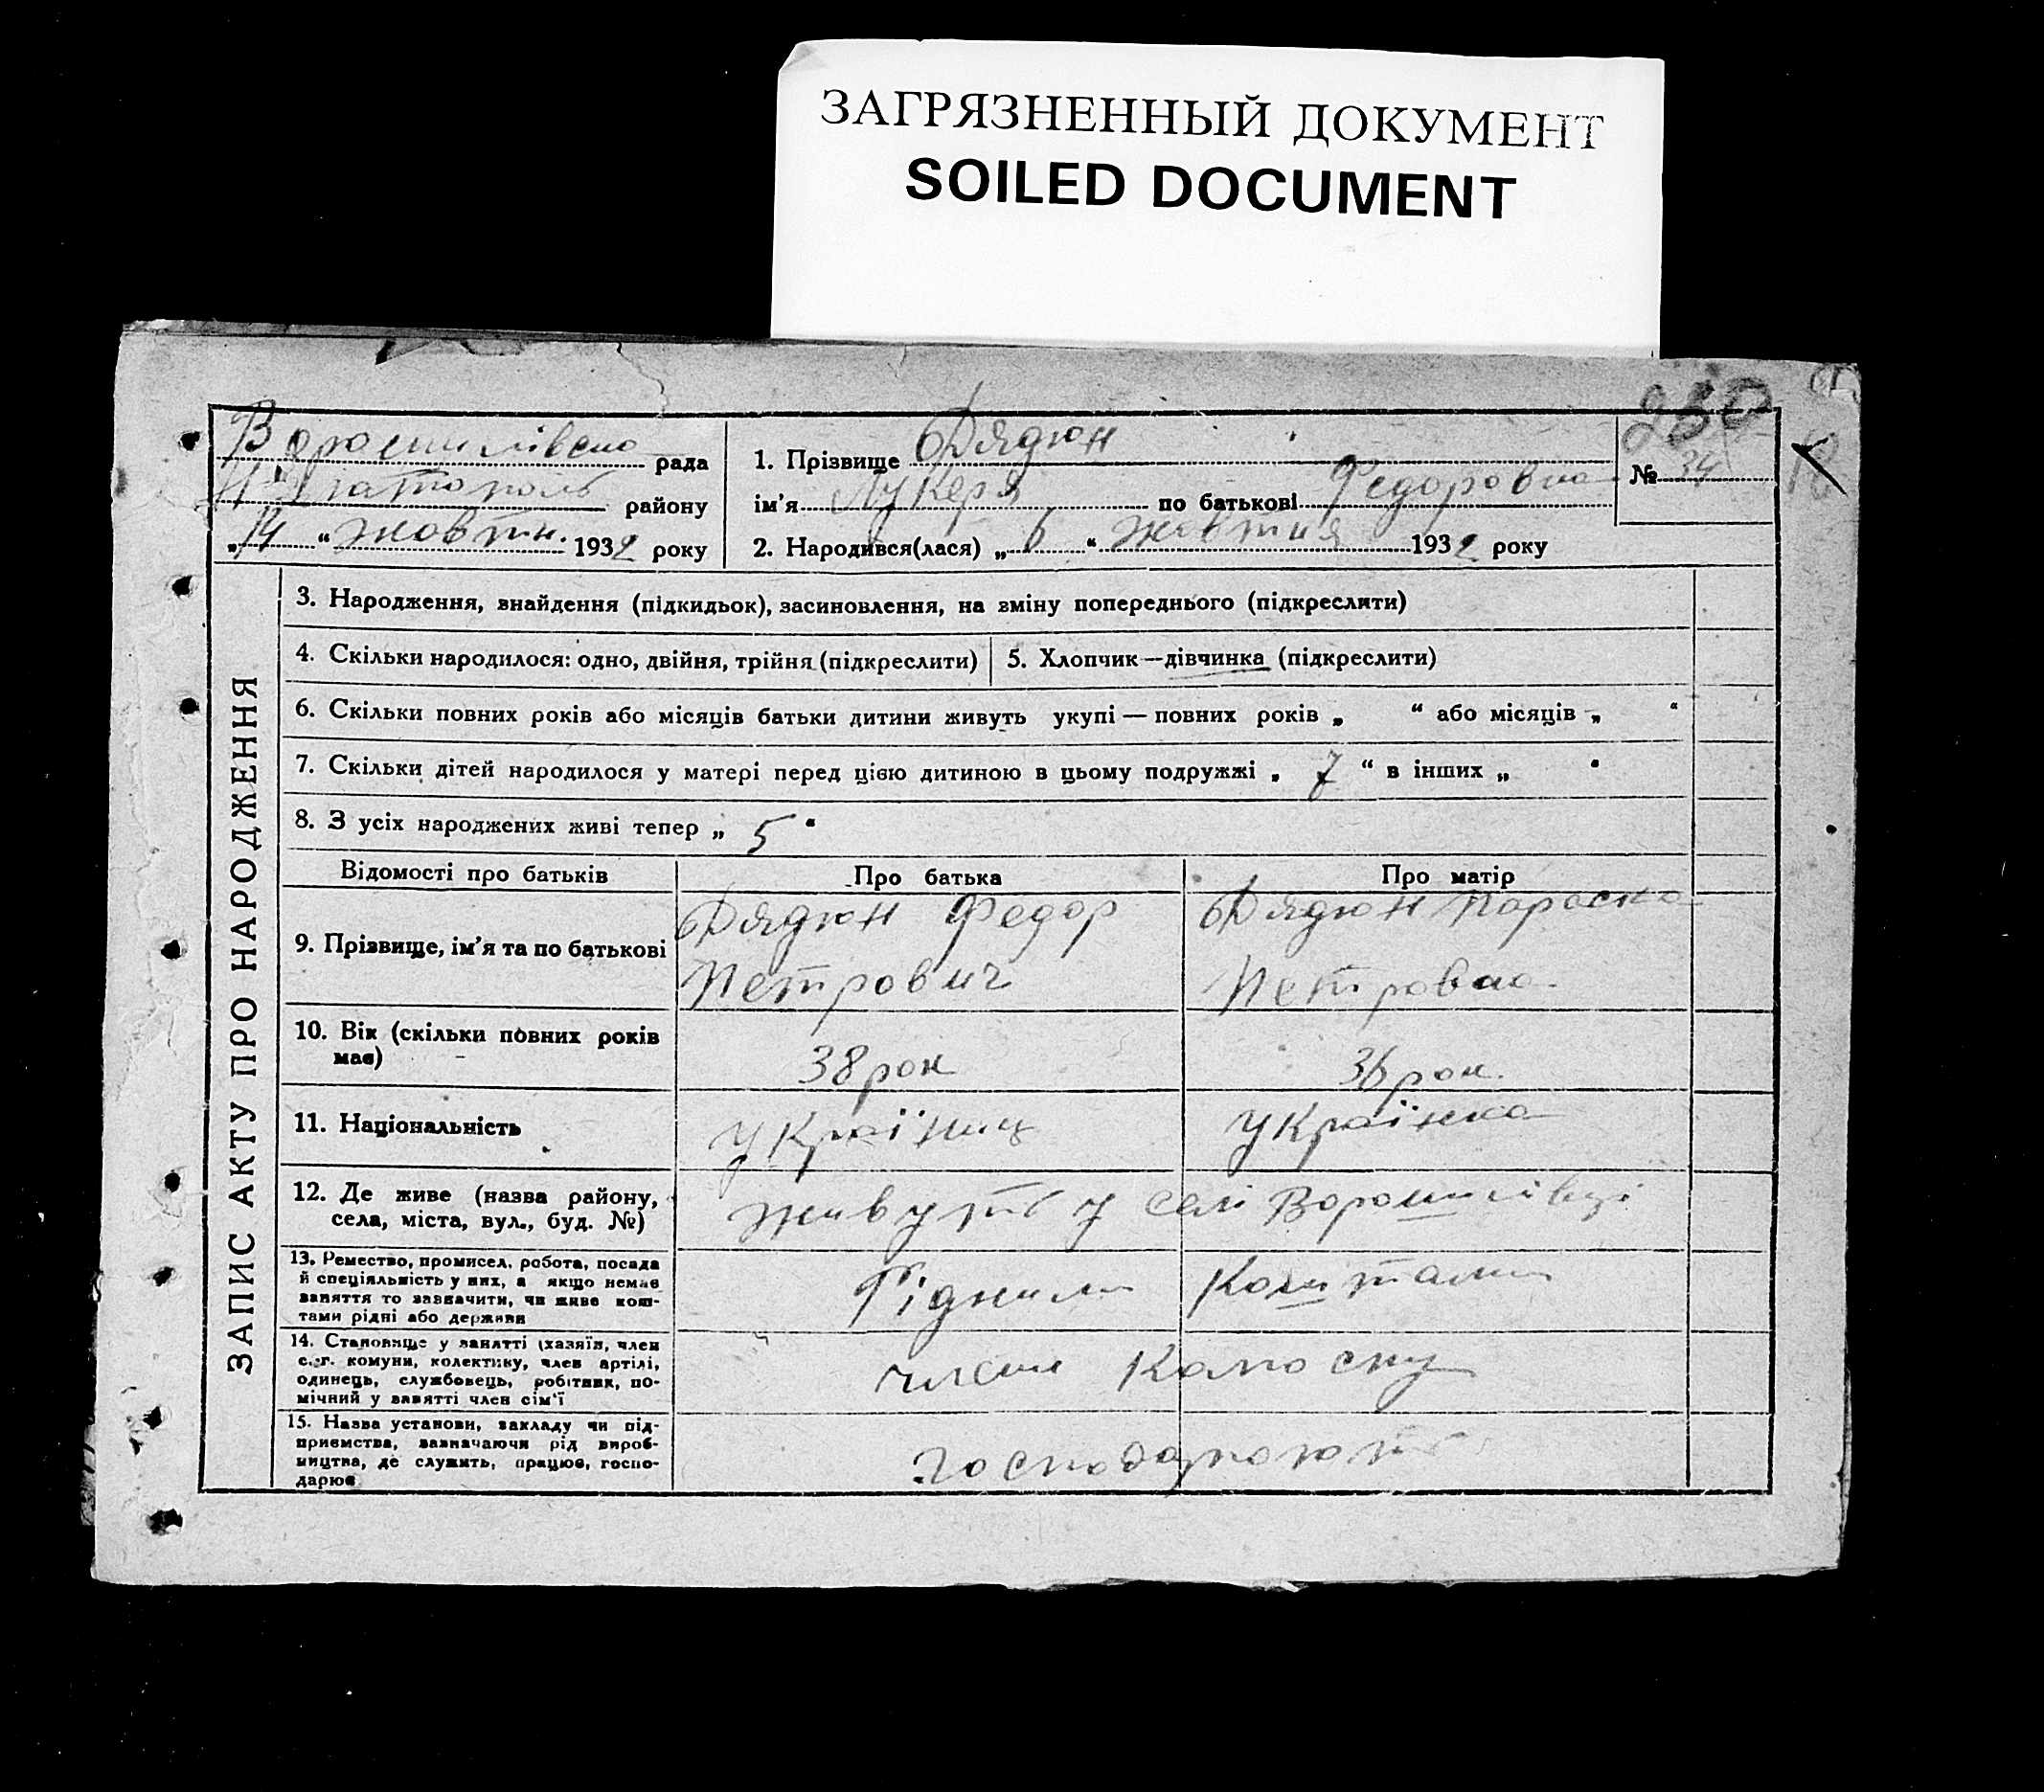 ЗАГРЯЗНЕННЫЙ ДОКУМЕНТ
SOILED DOCUMENT
280
Ворошилівська рада
Н-Златополь району
„14“ жовтн. 1932 року
1. Прізвище Дядюн
ім'я Лукеря по батькові Федоровна
№ 34
2. Народився(лася) „6“ жовтня 1932 року
ЗАПИС АКТУ ПРО НАРОДЖЕННЯ
3. Народження, знайдення (підкидьок), засиновлення, на зміну попереднього (підкреслити)
4. Скільки народилося: одно, двійня, трійня (підкреслити)
5. Хлопчик—дівчинка (підкреслити)
6. Скільки повних років або місяців батьки дитини живуть укупі — повних років „ “ або місяців „ “
7. Скільки дітей народилося у матері перед цією дитиною в цьому подружжі „ 7 “ в інших „ “
8. З усіх народжених живі тепер „ 5 “
Відомості про батьків
Про батька
Про матір
9. Прізвище, ім'я та по батькові
Дядюн Федор
Петрович
Дядюн Параска
Петровна
10. Вік (скільки повних років
має)
38 рок
36 рок.
11. Національність
Україниц
Українка
12. Де живе (назва району,
села, міста, вул., буд. №)
живуть у селі Ворошилівці
13. Ремество, промисел, робота, посада
й спеціяльність у них, а якщо немає
заняття то зазначити, чи живе кош-
тами рідні або держави
Рідними Коштами
14. Становище у занятті (хазяїн, член
с.-г. комуни, колективу, член артілі,
одинець, службовець, робітник, по-
мічний у занятті член сім'ї
член Колоску
15. Назва установи, закладу чи під-
приємства, зазначаючи рід вироб-
ництва, де служить, працює, госпо-
дарює
господарюють